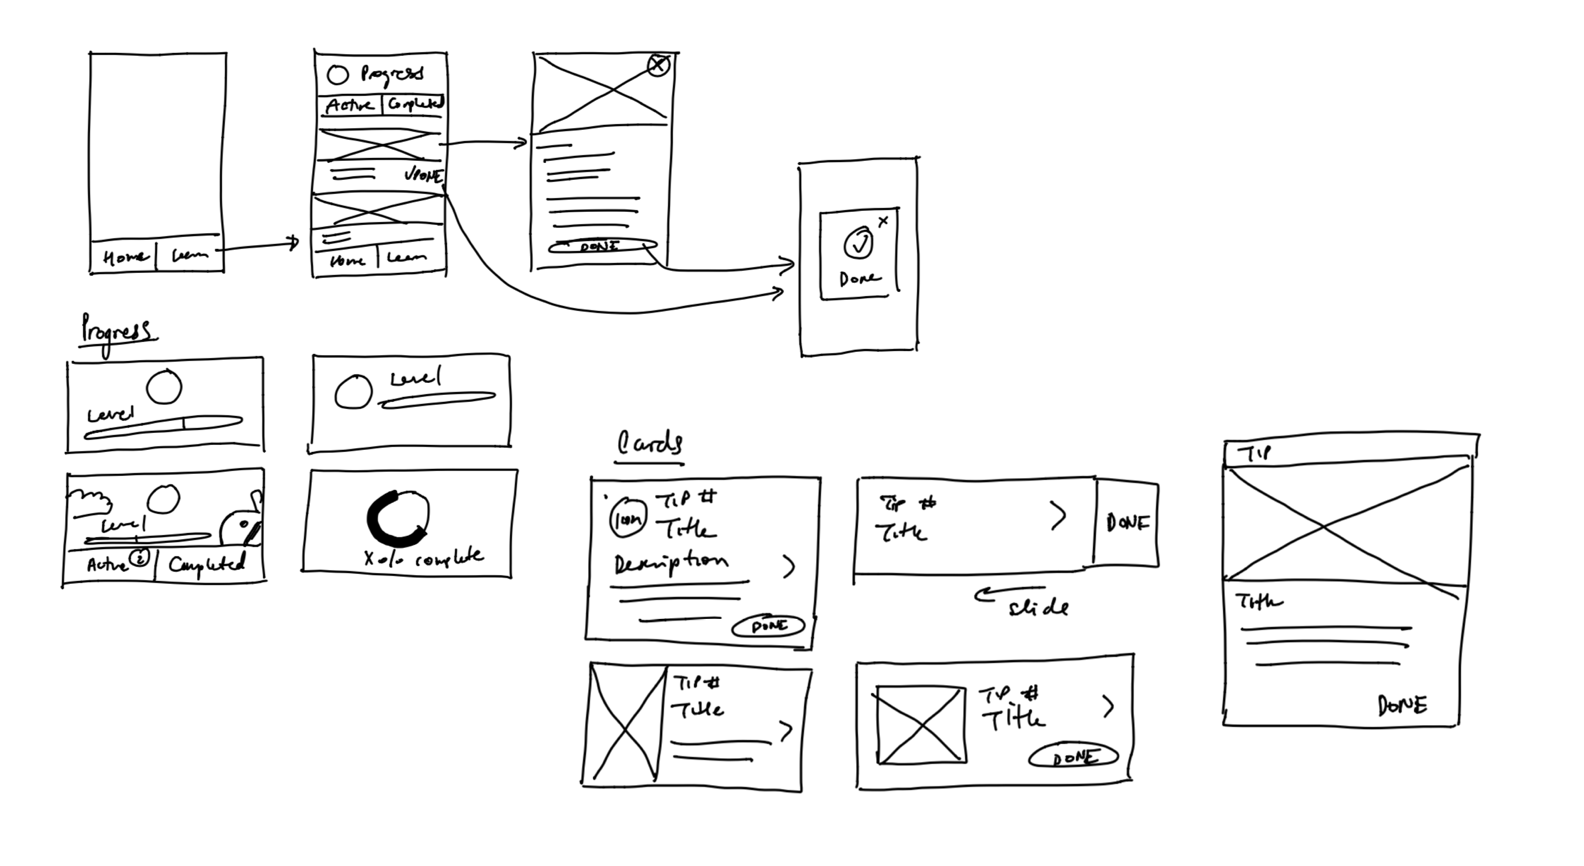 Home Learn
Progress
Active Completed
√DONE
Home Learn
X
DONE
x
Done
Progress
Level
Level
Level
Active 2 Completed
X % complete
Cards
Icon
TIP #
Title
Description
DONE
TIP #
Title
DONE
slide
TIP #
Title
TIP #
Title
DONE
TIP
Title
DONE